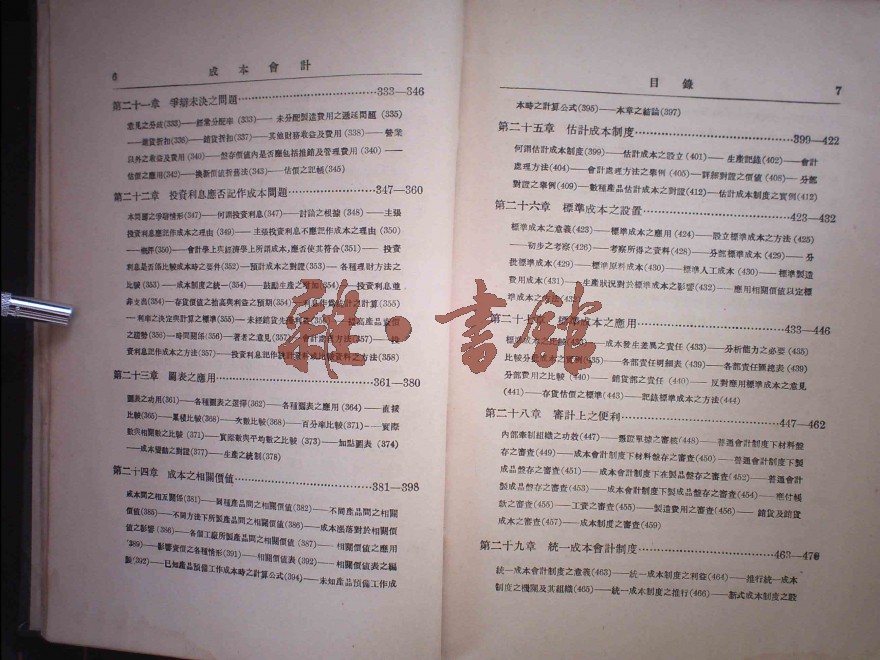 6
成本會計
第二十一章 爭辯未決之問題 333—346
意見之分歧(333)——營業分配率(333)——未分配製造費用之遞延問題(335)
——進貨折扣(336)——銷貨折扣(337)——其他財務收益及費用(338)——營業
以外之收益及費用(340)——盤存價值內是否應包括推銷及管理費用(340)——
估價之應用(342)——換新價值折舊法(343)——估價之記帳(345)
第二十二章 投資利息應否記作成本問題 347—360
本問題之爭辯情形(347)——何謂投資利息(347)——討論之根據(348)——主張
投資利息應記作成本之理由(349)——主張投資利息不應記作成本之理由(350)
——批評(350)——會計學上與經濟學上所謂成本,應否使其符合(351)——投資
利息是否爲比較成本時之要件(352)——預計成本之對證(353)——各種理財方法之
比較(353)——成本制度之統一(354)——鼓勵生產之增加(354)——投資利息並
非支出(354)——存貨價值之抬高與利益之預期(354)
——利率之決定與計算之標準(355)——未經銷貨先獲利益(356)——抬高產品價值
之趨勢(356)——時間關係(356)——著者之意見(357)——會計處理方法(357)——投
資利息記作成本之方法(357)——投資利息記作統計資料或比較資料之方法(358)
第二十三章 圖表之應用 361—380
圖表之功用(361)——各種圖表之選擇(362)——各種圖表之應用(364)——直線
比較(365)——累積比較(368)——次數比較(368)——百分率比較(371)——實際
數與相關數之比較(371)——實際數與平均數之比較(373)——如點圖表(374)
——成本變動之對證(377)——生產之統制(378)
第二十四章 成本之相關價值 381—398
成本間之相互關係(381)——同種產品間之相關價值(382)——不同產品間之相關
價值(385)——不同方法下所製產品間之相關價值(386)——成本漲落對於相關價
值之影響(386)——各個工廠所製產品間之相關價值(387)——相關價值之應用
(389)——影響賣價之各種情形(391)——相關價值表(392)——相關價值表之編
製(392)——已知產品預備工作成本時之計算公式(394)——未知產品預備工作成
目錄
7
本時之計算公式(395)——本章之結論(397)
第二十五章 估計成本制度 399—422
何謂估計成本制度(399)——估計成本之設立(401)——生產記錄(402)——會計
處理方法(404)——會計處理方法之舉例(405)——詳細對證之價值(408)——分部
對證之舉例(409)——數種產品估計成本之對證(412)——估計成本制度之實例(412)
第二十六章 標準成本之設置 423—432
標準成本之意義(423)——標準成本之應用(424)——設立標準成本之方法(425)
——初步之考察(426)——考察所得之資料(428)——分部標準成本(429)——分
批標準成本(429)——標準原料成本(430)——標準人工成本(430)——標準製造
費用成本(431)——生產狀況對於標準成本之影響(432)——應用相關價值以定標
準成本之方法(432)
第二十七章 標準成本之應用 433—446
標準成本之記帳(433)——成本發生差異之責任(433)——分析能力之必要(435)
比較分批成本之實例(435)——各部責任明細表(439)——各部責任匯總表(439)
分部費用之比較(440)——銷貨部之責任(440)——反對應用標準成本之意見
(441)——存貨估價之標準(443)——記錄標準成本之方法(444)
第二十八章 審計上之便利 447—462
內部牽制組織之功效(447)——憑證單據之審核(448)——普通會計制度下材料盤
存之審查(449)——成本會計制度下材料盤存之審查(450)——普通會計制度下製
成品盤存之審查(451)——成本會計制度下在製品盤存之審查(452)——普通會計
製成品盤存之審查(453)——成本會計制度下製成品盤存之審查(454)——應付帳
款之審查(455)——工資之審查(455)——製造費用之審查(456)——銷貨及銷貨
成本之審查(457)——成本制度之審查(459)
第二十九章 統一成本會計制度 463—470
統一成本會計制度之意義(463)——統一成本制度之利益(464)——推行統一成本
制度之機關及其組織(465)——統一成本制度之推行(466)——新式成本制度之設
雜·書館